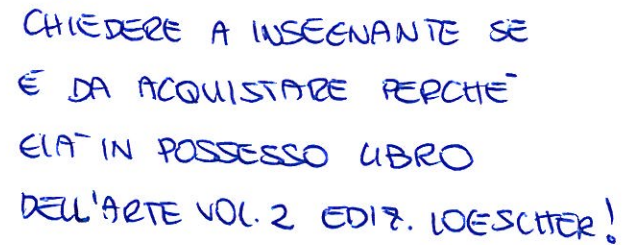 CHIEDERE A INSEGNANTE SE
È DA ACQUISTARE PERCHÈ
GIÀ IN POSSESSO LIBRO
DELL'ARTE VOL. 2 EDIZ. LOESCHER!